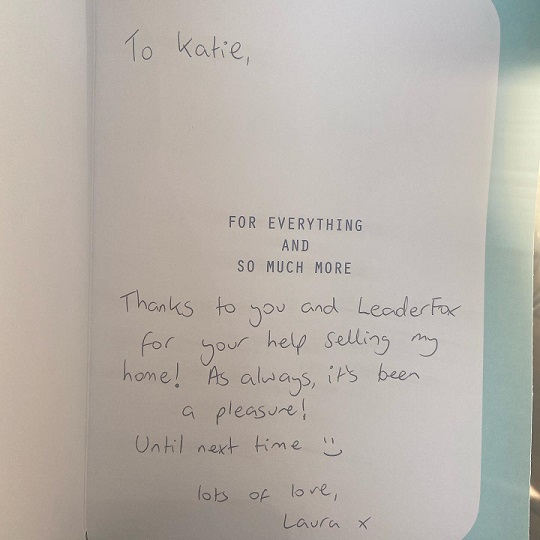 To Katie,
FOR EVERYTHING
AND
SO MUCH MORE
Thanks to you and LeaderFox
for your help selling my
home! As always, it's been
a pleasure!
Until next time :)
lots of love,
Laura x